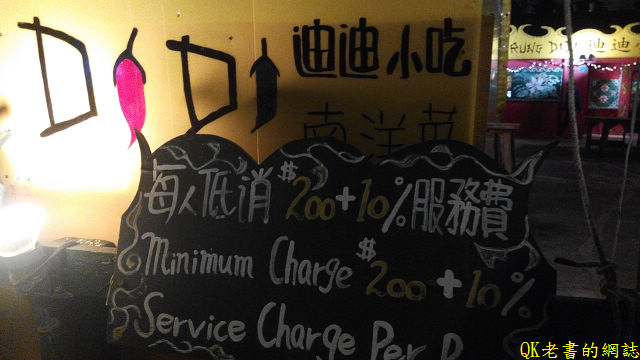 DiDi 迪迪小吃
南洋菜
RUNG DI 迪迪
每人低消$200+10%服務費
Minimum Charge $200+10%
Service Charge Per P
QK老書的網誌